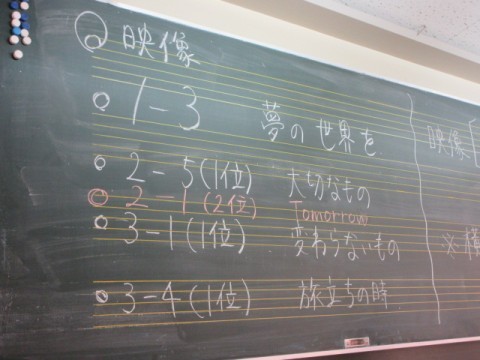 ◎ 映像
○ 1-3 夢の世界を
○ 2-5(1位) 大切なもの
◎ 2-1(2位) Tomorrow
○ 3-1(1位) 変わらないもの
○ 3-4(1位) 旅立ちの時
映像
※